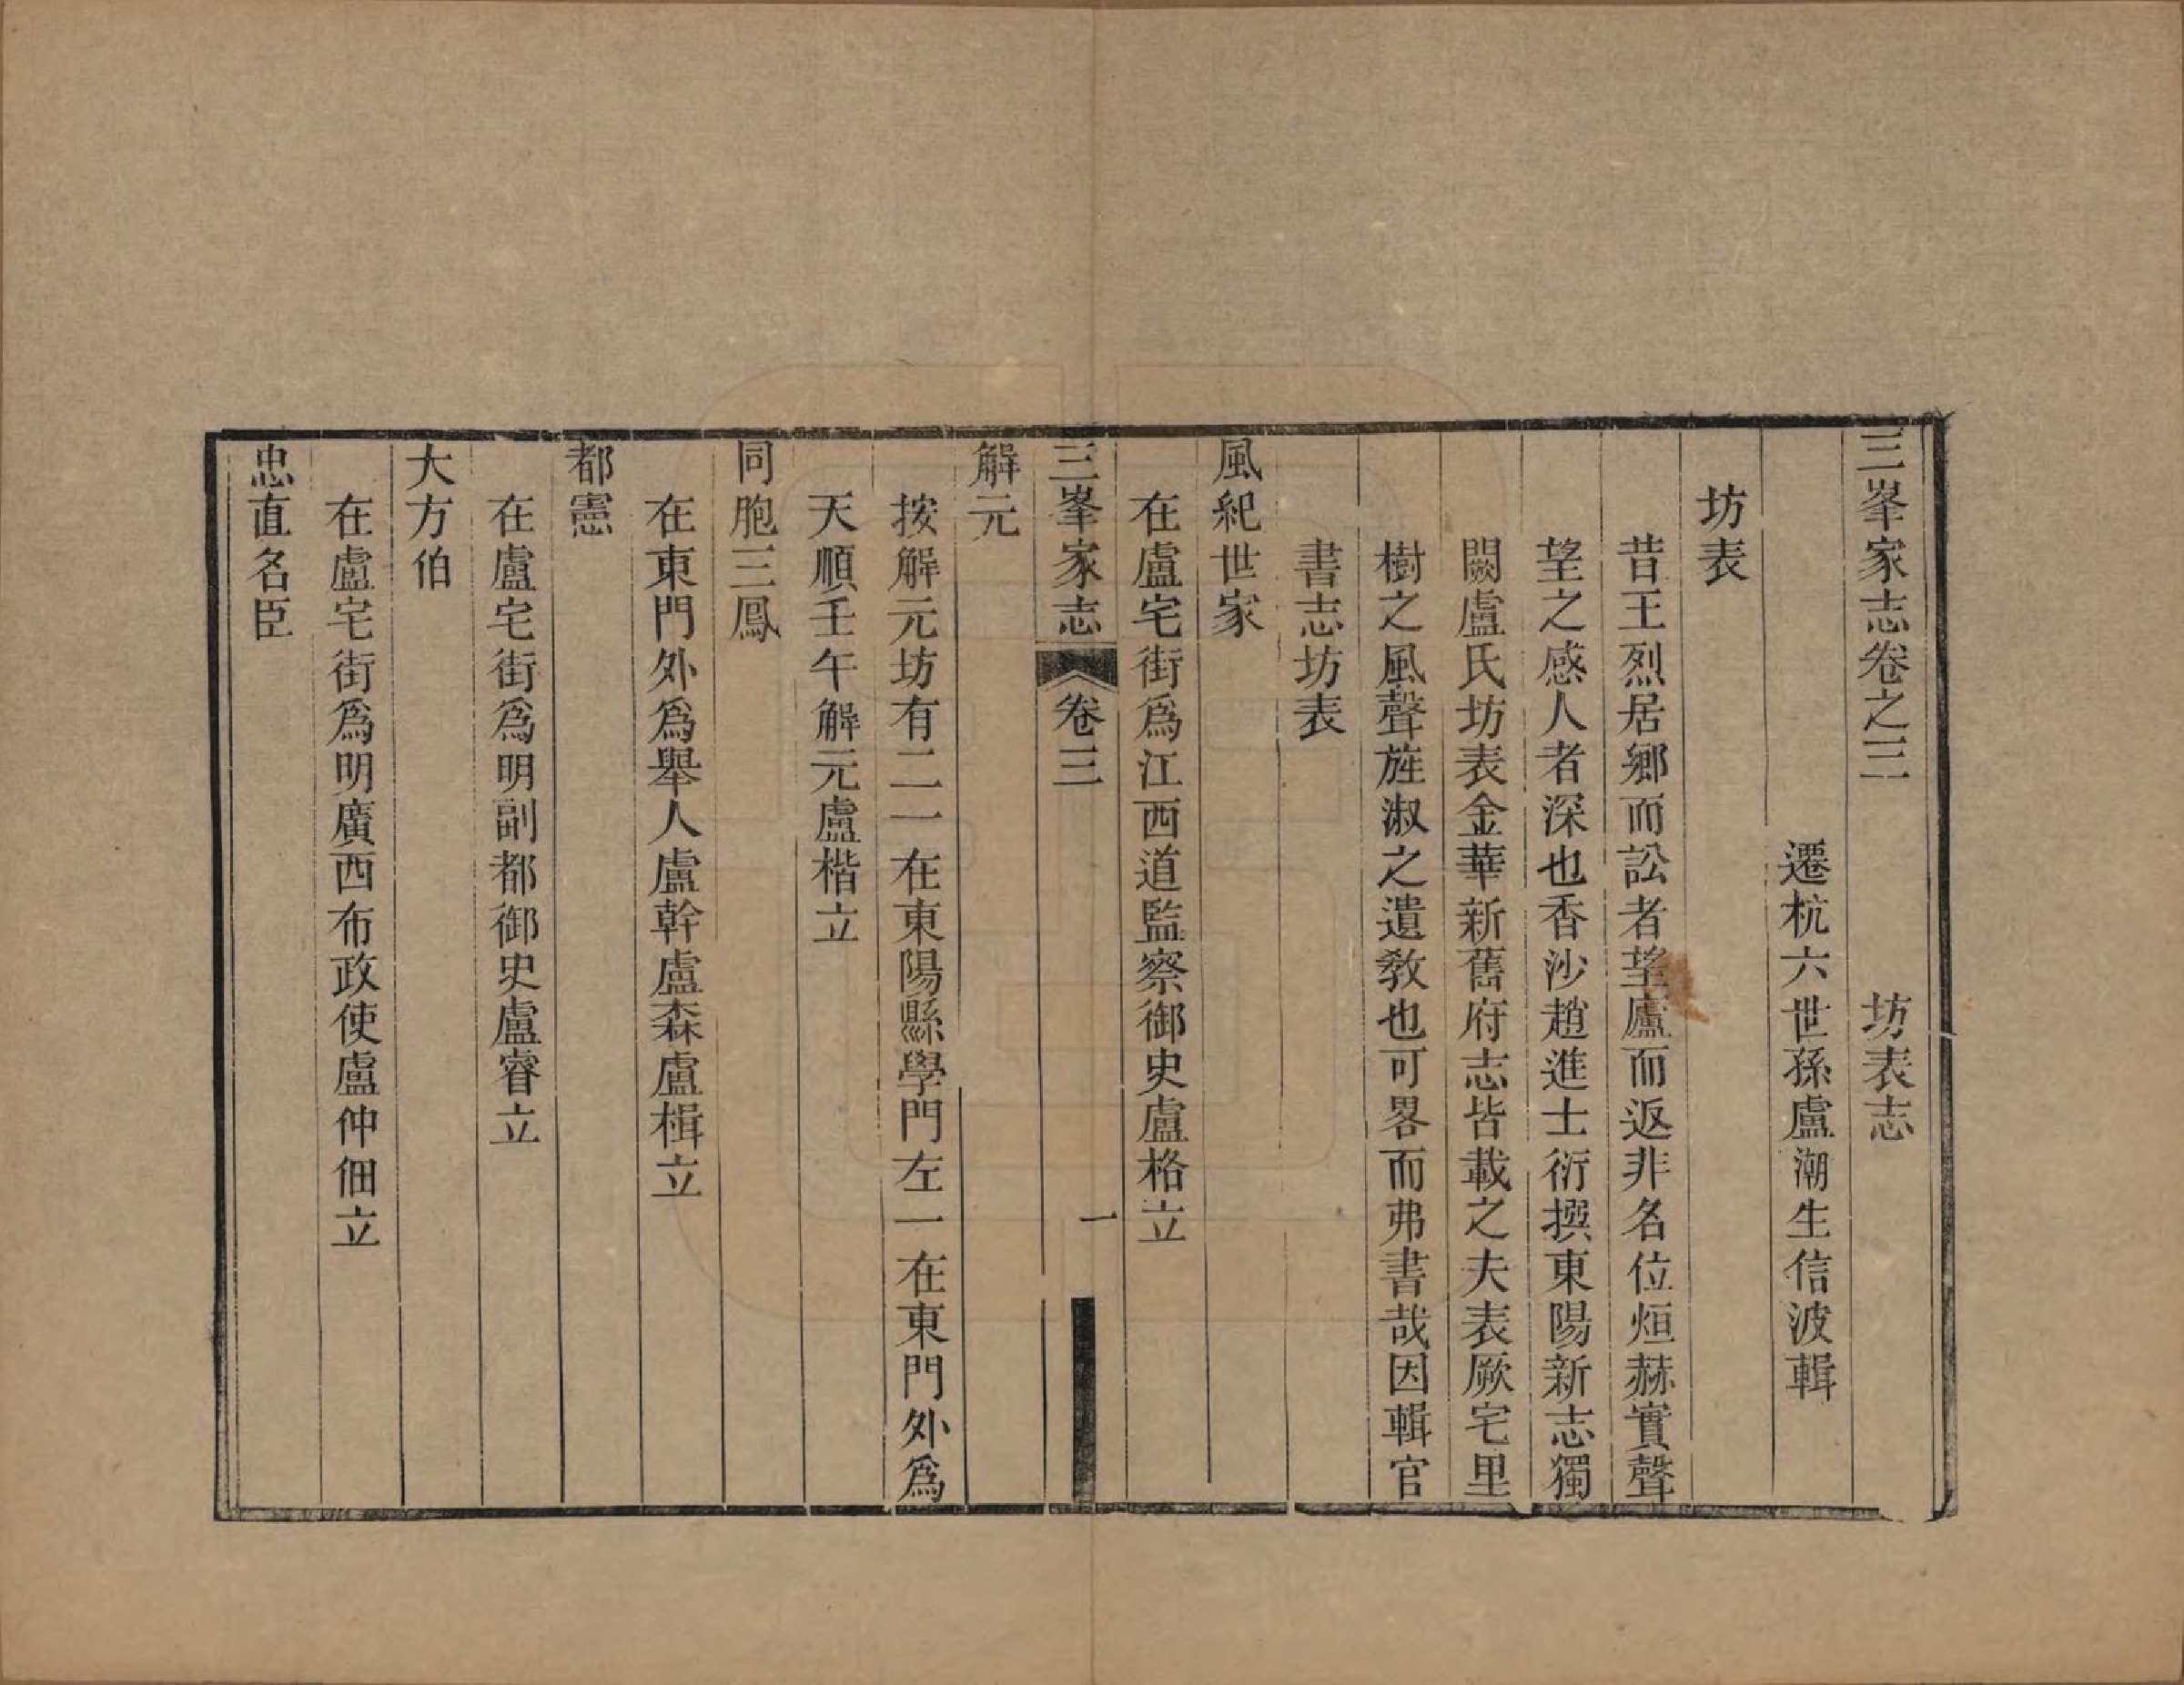 三峯家志卷之三　坊表志
遷杭六世孫盧潮生信波輯
坊表
昔王烈居鄉而訟者望廬而返非名位烜赫實聲
望之感人者深也香沙趙進士衍撰東陽新志獨
闕盧氏坊表金華新舊府志皆載之夫表厥宅里
樹之風聲旌淑之遺教也可畧而弗書哉因輯官
書志坊表
風紀世家
在盧宅街爲江西道監察御史盧格立
三峯家志　卷三　一
解元
按解元坊有二一在東陽縣學門左一在東門外爲
天順壬午解元盧楷立
同胞三鳳
在東門外爲舉人盧幹盧森盧楫立
都憲
在盧宅街爲明副都御史盧睿立
大方伯
在盧宅街爲明廣西布政使盧仲佃立
忠直名臣